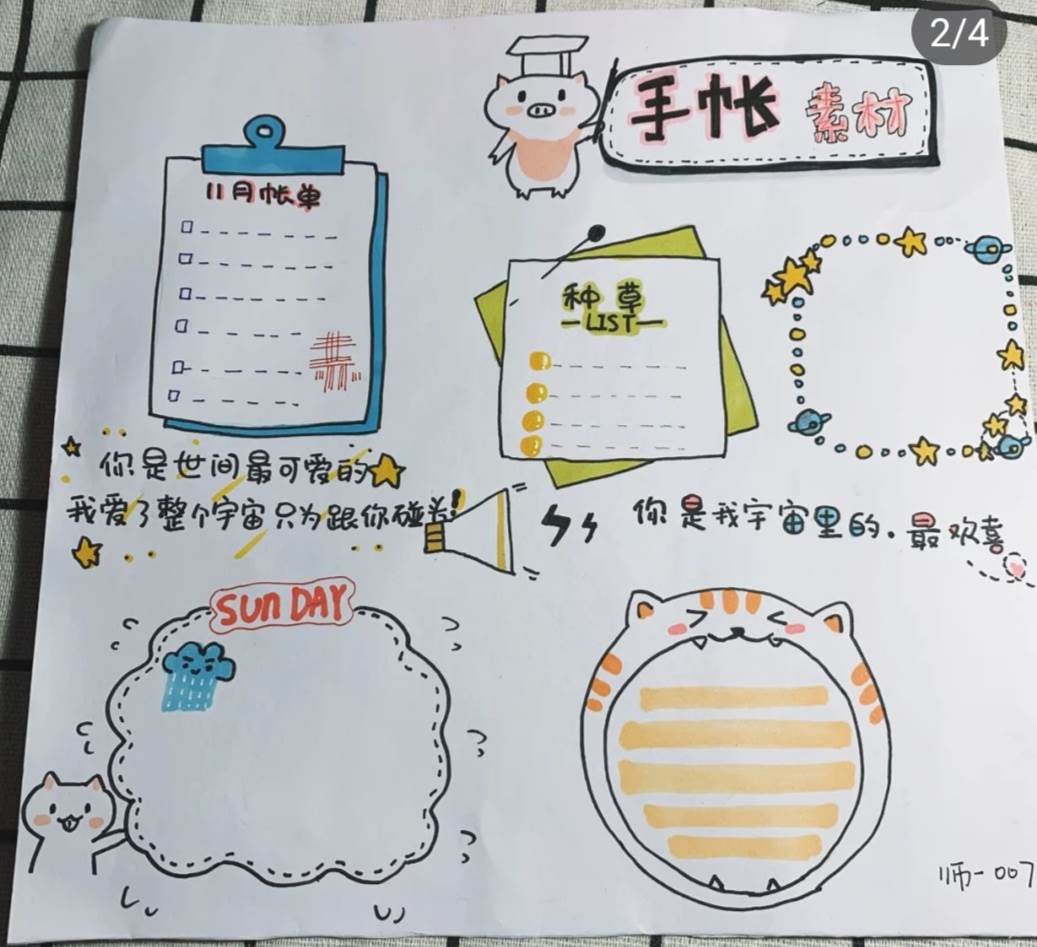 2/4
手帐 素材
11月帐单
种草
LIST
你是世间最可爱的
我爱了整个宇宙只为跟你碰
你是我宇宙里的.最欢喜
SUNDAY
师-007